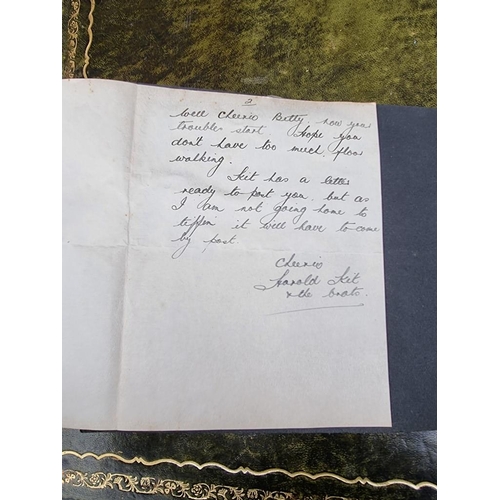 2
Well Cheerio Betty, now your
troubles start. Hope you
don't have too much floor
walking.
Kit has a letter
ready to post you, but as
I am not going home to
tiffin it will have to come
by post.
Cheerio
Harold Kit
& the brats.